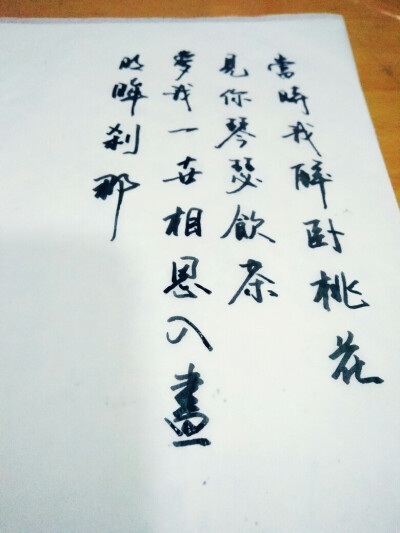 當時我醉卧桃花
見你琴瑟飲茶
夢我一世相思入畫
明眸刹那